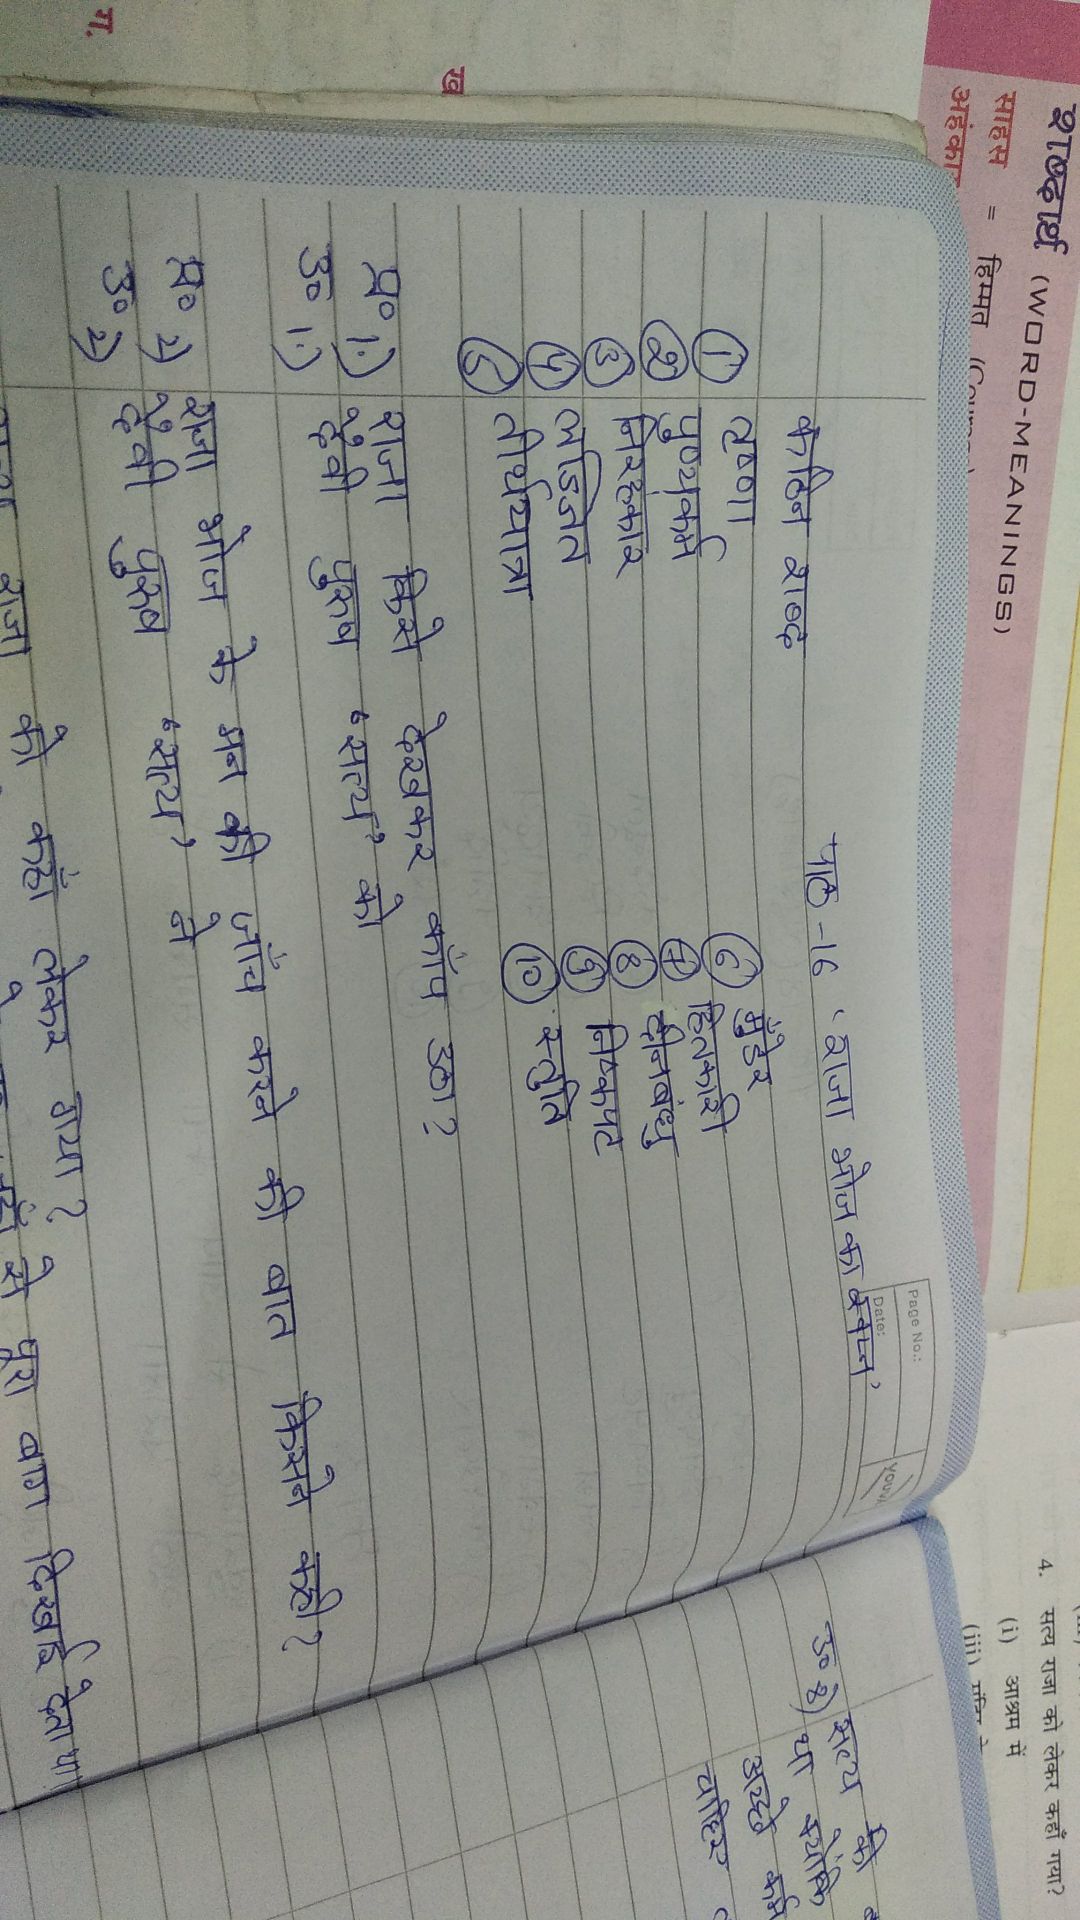 शब्दार्थ (WORD-MEANINGS)
साहस = हिम्मत
अहंकार
ख
ग.
Page No.:
Date:
YOUVA
पाठ-16 'राजा भोज का स्वप्न'
कठिन शब्द
① तृष्णा ⑥ मुँडेर
② पुण्यकर्म ⑦ हितकारी
③ तिरस्कार ⑧ दीनबंधु
④ लज्जित ⑨ निष्कपट
⑤ तीर्थयात्रा ⑩ स्तुति
प्र० 1.) राजा किसे देखकर काँप उठा?
उ० 1.) दैवी पुरुष "सत्य" को
प्र० 2) राजा भोज के मन की जाँच करने की बात किसने कही?
उ० 2) दैवी पुरुष "सत्य" ने
राजा को कहाँ लेकर गया?
से पूरा बाग दिखाई देता था
4. सत्य राजा को लेकर कहाँ गया?
(i) आश्रम में
(iii)
उ० 8) सत्य की
था क्योंकि
अच्छे कर्म
चाहिए